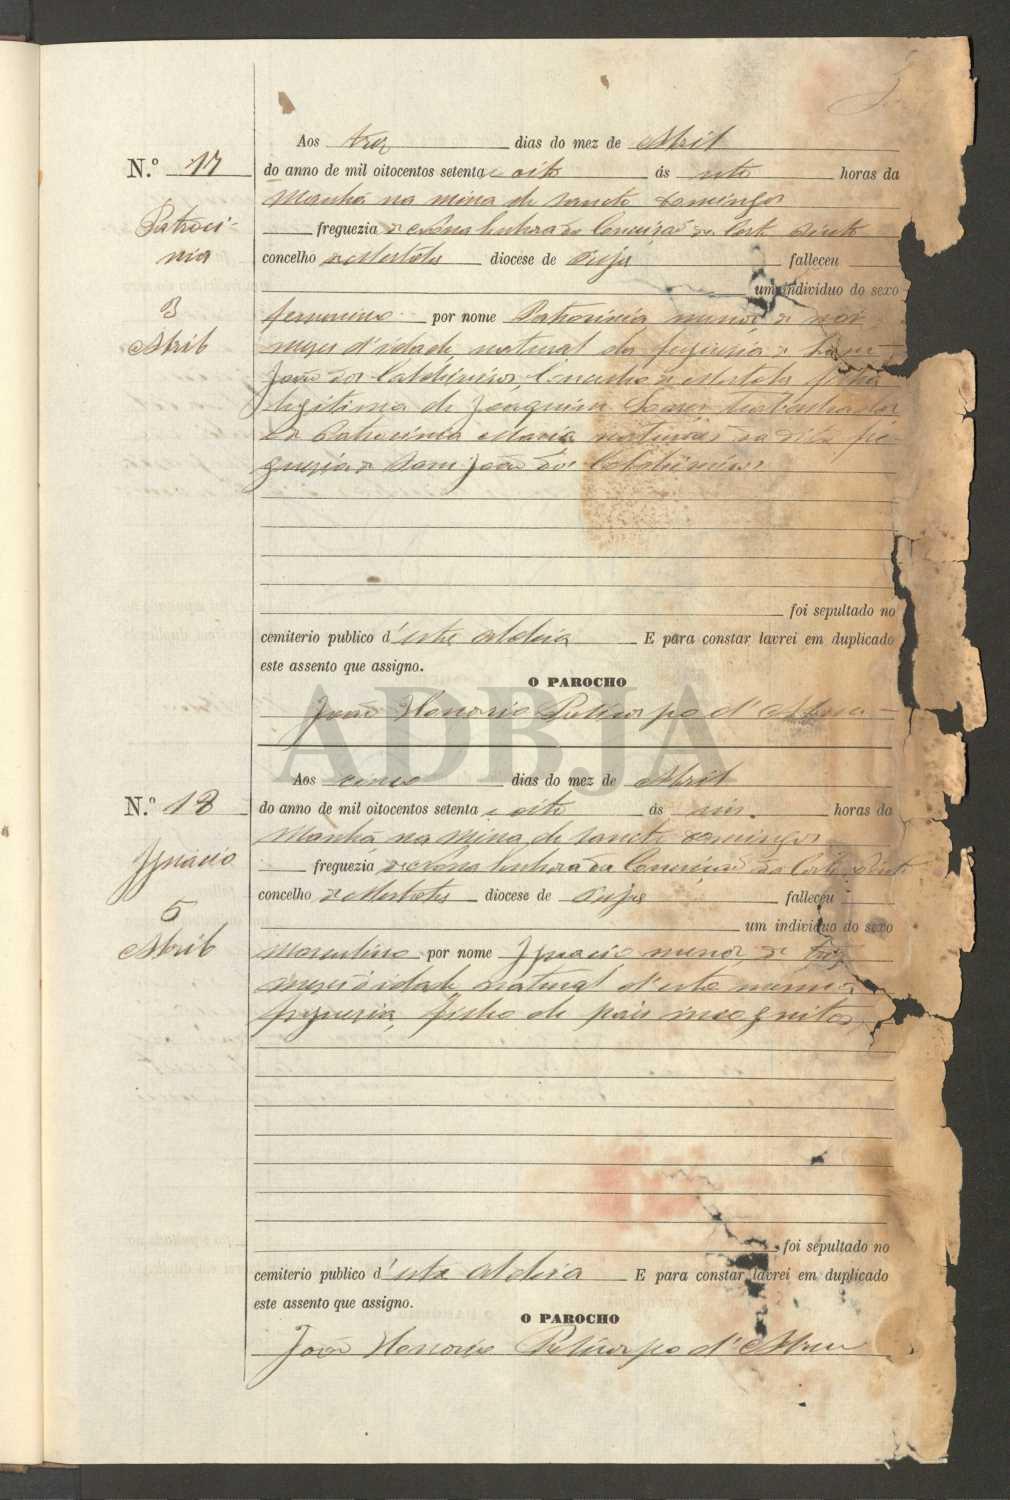 Aos tres dias do mez de Abril
N.º 17 do anno de mil oitocentos setenta e oito ás sete horas da
Manhã na mina de Sancto Domingos
Patroci- freguezia de Nossa Senhora da Conceição da Corte Pinto
nia concelho de Mertola diocese de Beja falleceu
um individuo do sexo
3 femenino por nome Patrocinia menor de
Abril mezes d'idade, natural da freguesia de Sam
João dos Caldeireiros, Concelho de Mertola filha
legitima de Joaquim trabalhador
e de Patrocinia Maria naturaes da dita fre-
guesia de Sam João dos Caldeireiros
foi sepultado no
cemiterio publico d'esta Aldeia E para constar lavrei em duplicado
este assento que assigno.
O PAROCHO
João Honorio Policarpo d'Abreu
ADBJA
Aos cinco dias do mez de Abril
N.º 18 do anno de mil oitocentos setenta e oito ás seis horas da
Manhã na Mina de Sancto Domingos
Ignacio freguezia de Nossa Senhora da Conceição da Corte Pinto
concelho de Mertola diocese de Beja falleceu
5 um individuo do sexo
Abril Masculino por nome Ignacio, menor, de tres
mezes d'idade, natural d'esta mesma
freguesia, filho de pais incognitos
foi sepultado no
cemiterio publico d'esta Aldeia E para constar lavrei em duplicado
este assento que assigno.
O PAROCHO
João Honorio Policarpo d'Abreu